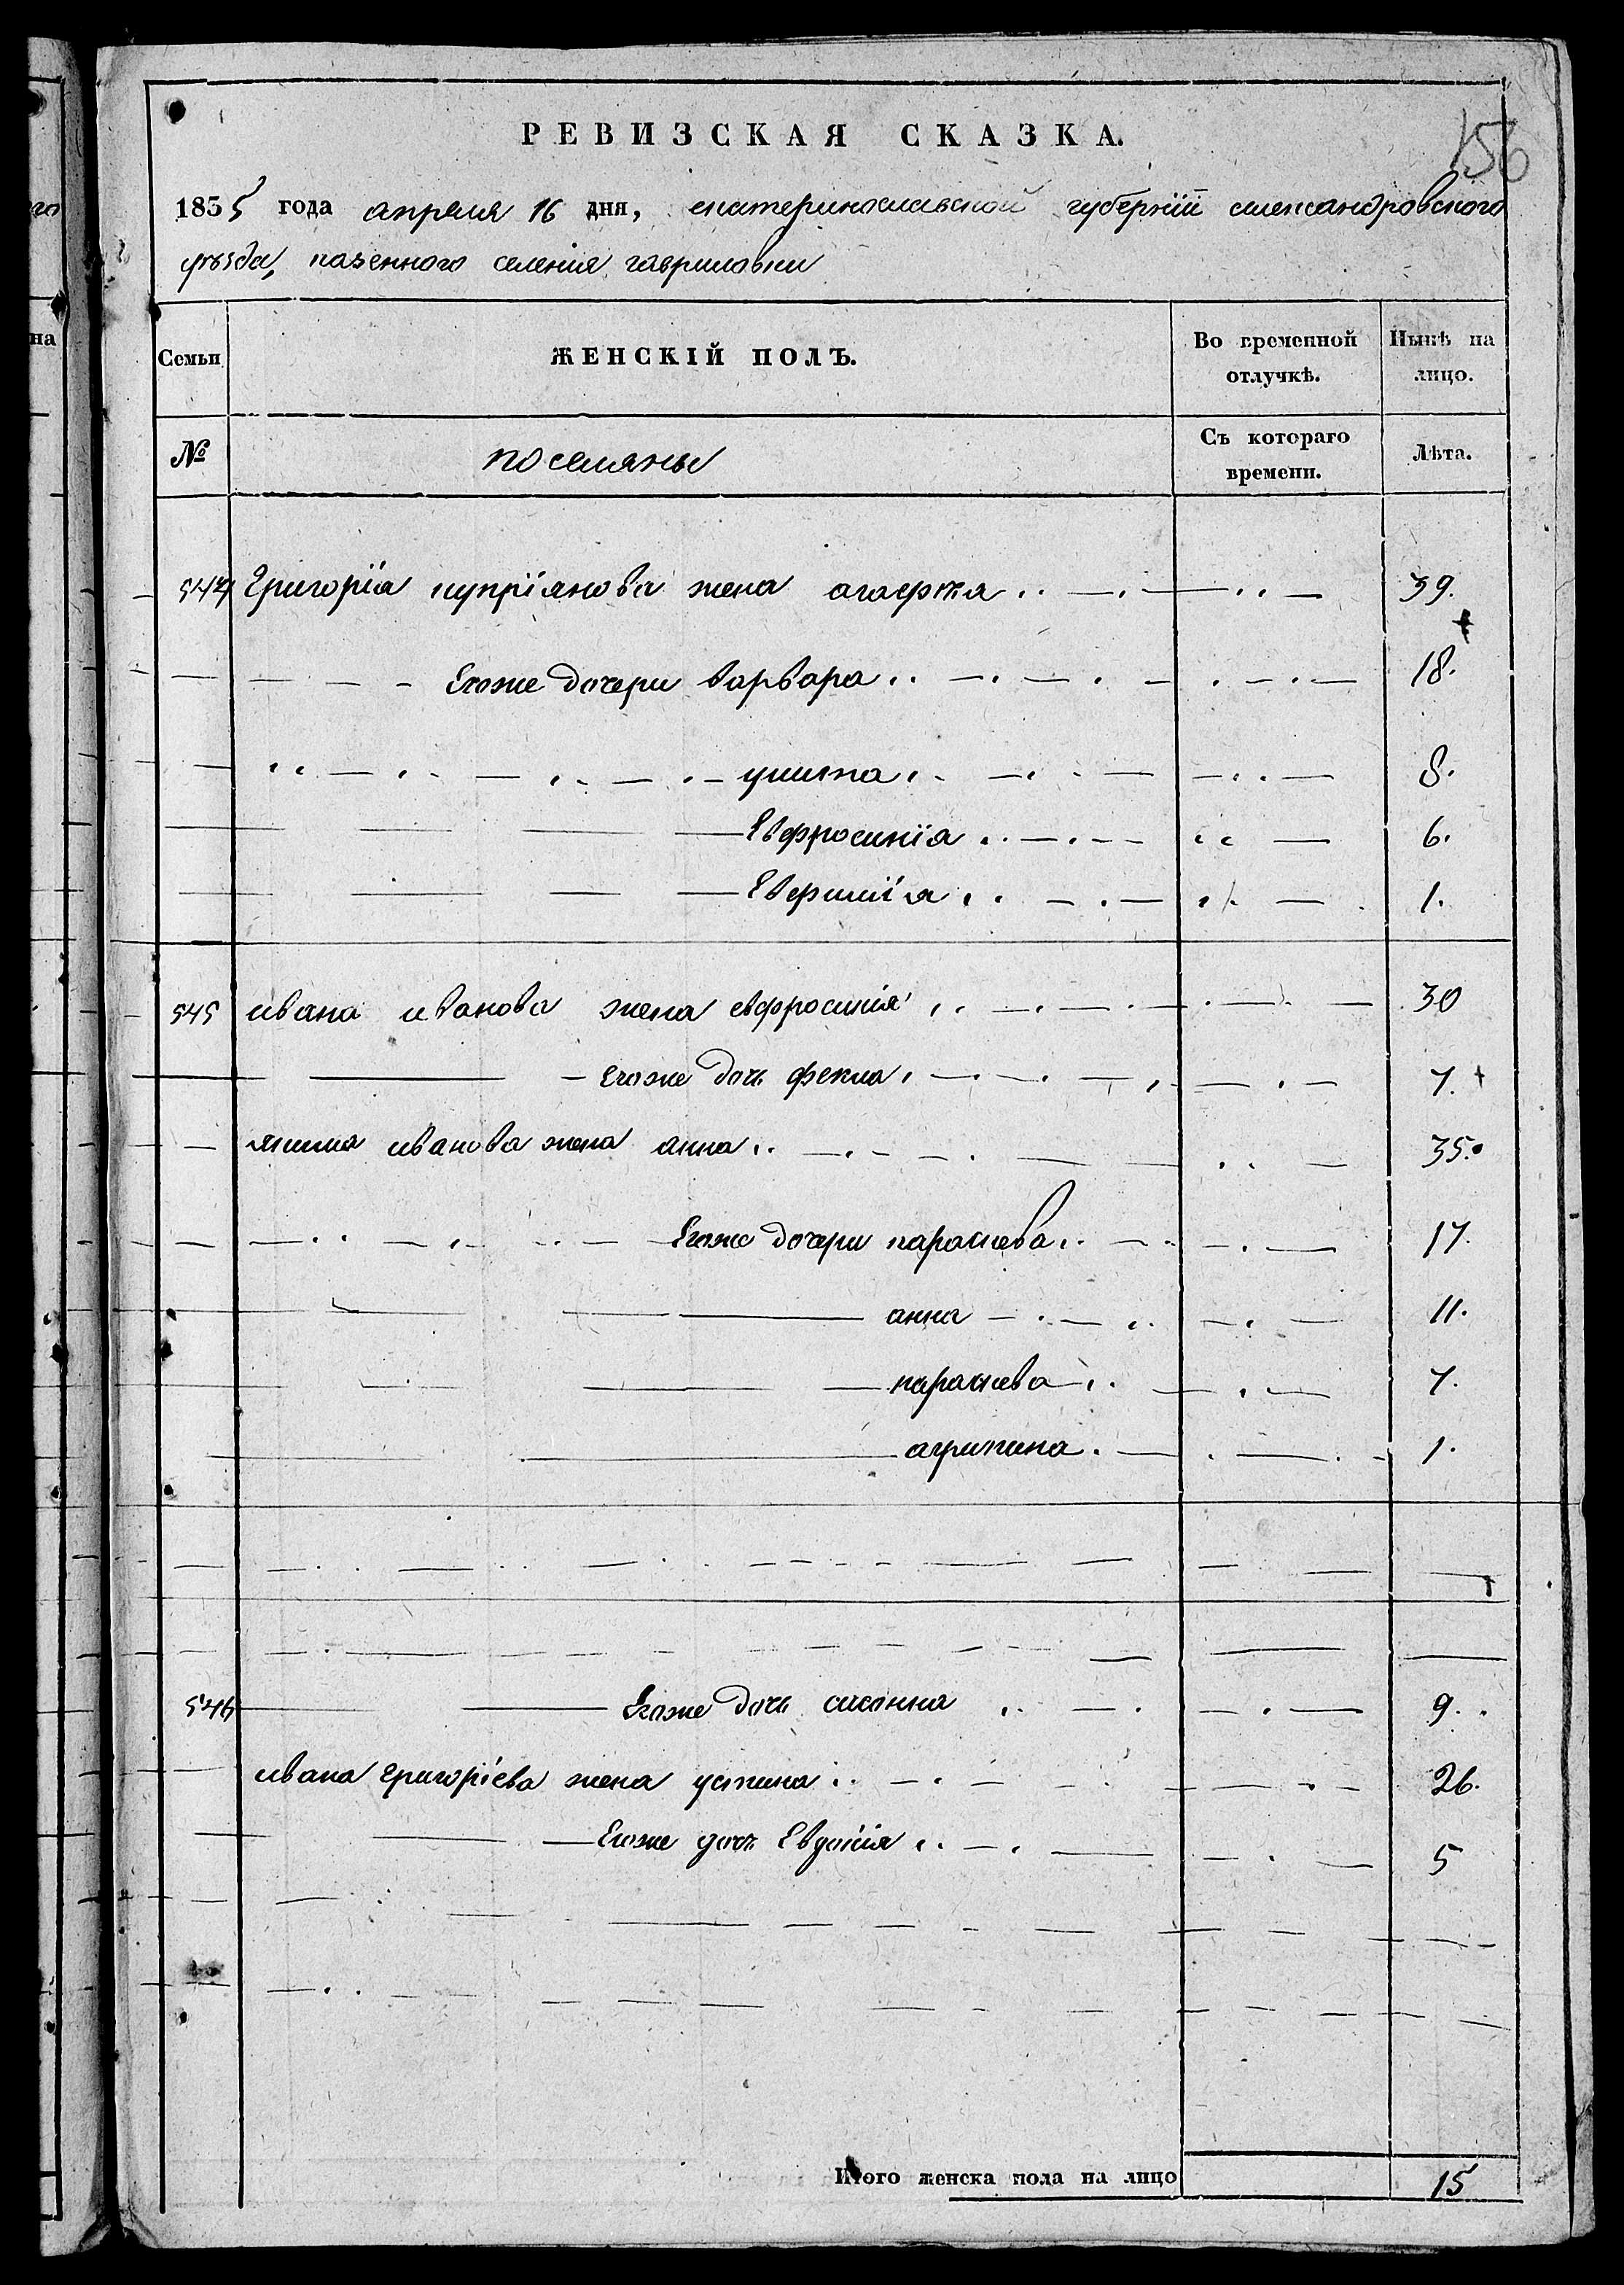 156
РЕВИЗСКАЯ СКАЗКА.
1835 года апреля 16 дня, екатеринославской губернїй александровского
уезда, казенного селения гавриловки
Семьи
ЖЕНСКІЙ ПОЛЪ.
Во временной
отлучкѣ.
Нынѣ на
лицо.
№
поселяны
Съ котораго
времени.
Лѣта.
544 Григорїя купрїянова жена агафія 39.
Егоже дочери варвара 18.
улита 8.
Евфросинїя 6.
Евфимїя 1.
545 ивана иванова жена евфросинїя 30
Егоже дочь фекла 7.
якима иванова жена анна 35.
Егоже дочери параскева 17.
анна 11.
параскева 7.
агрипина 1.
546 Егоже дочь 9.
ивана григорїева жена устина 26.
Егоже дочь Евдокїя 5
Итого женска пола на лицо 15